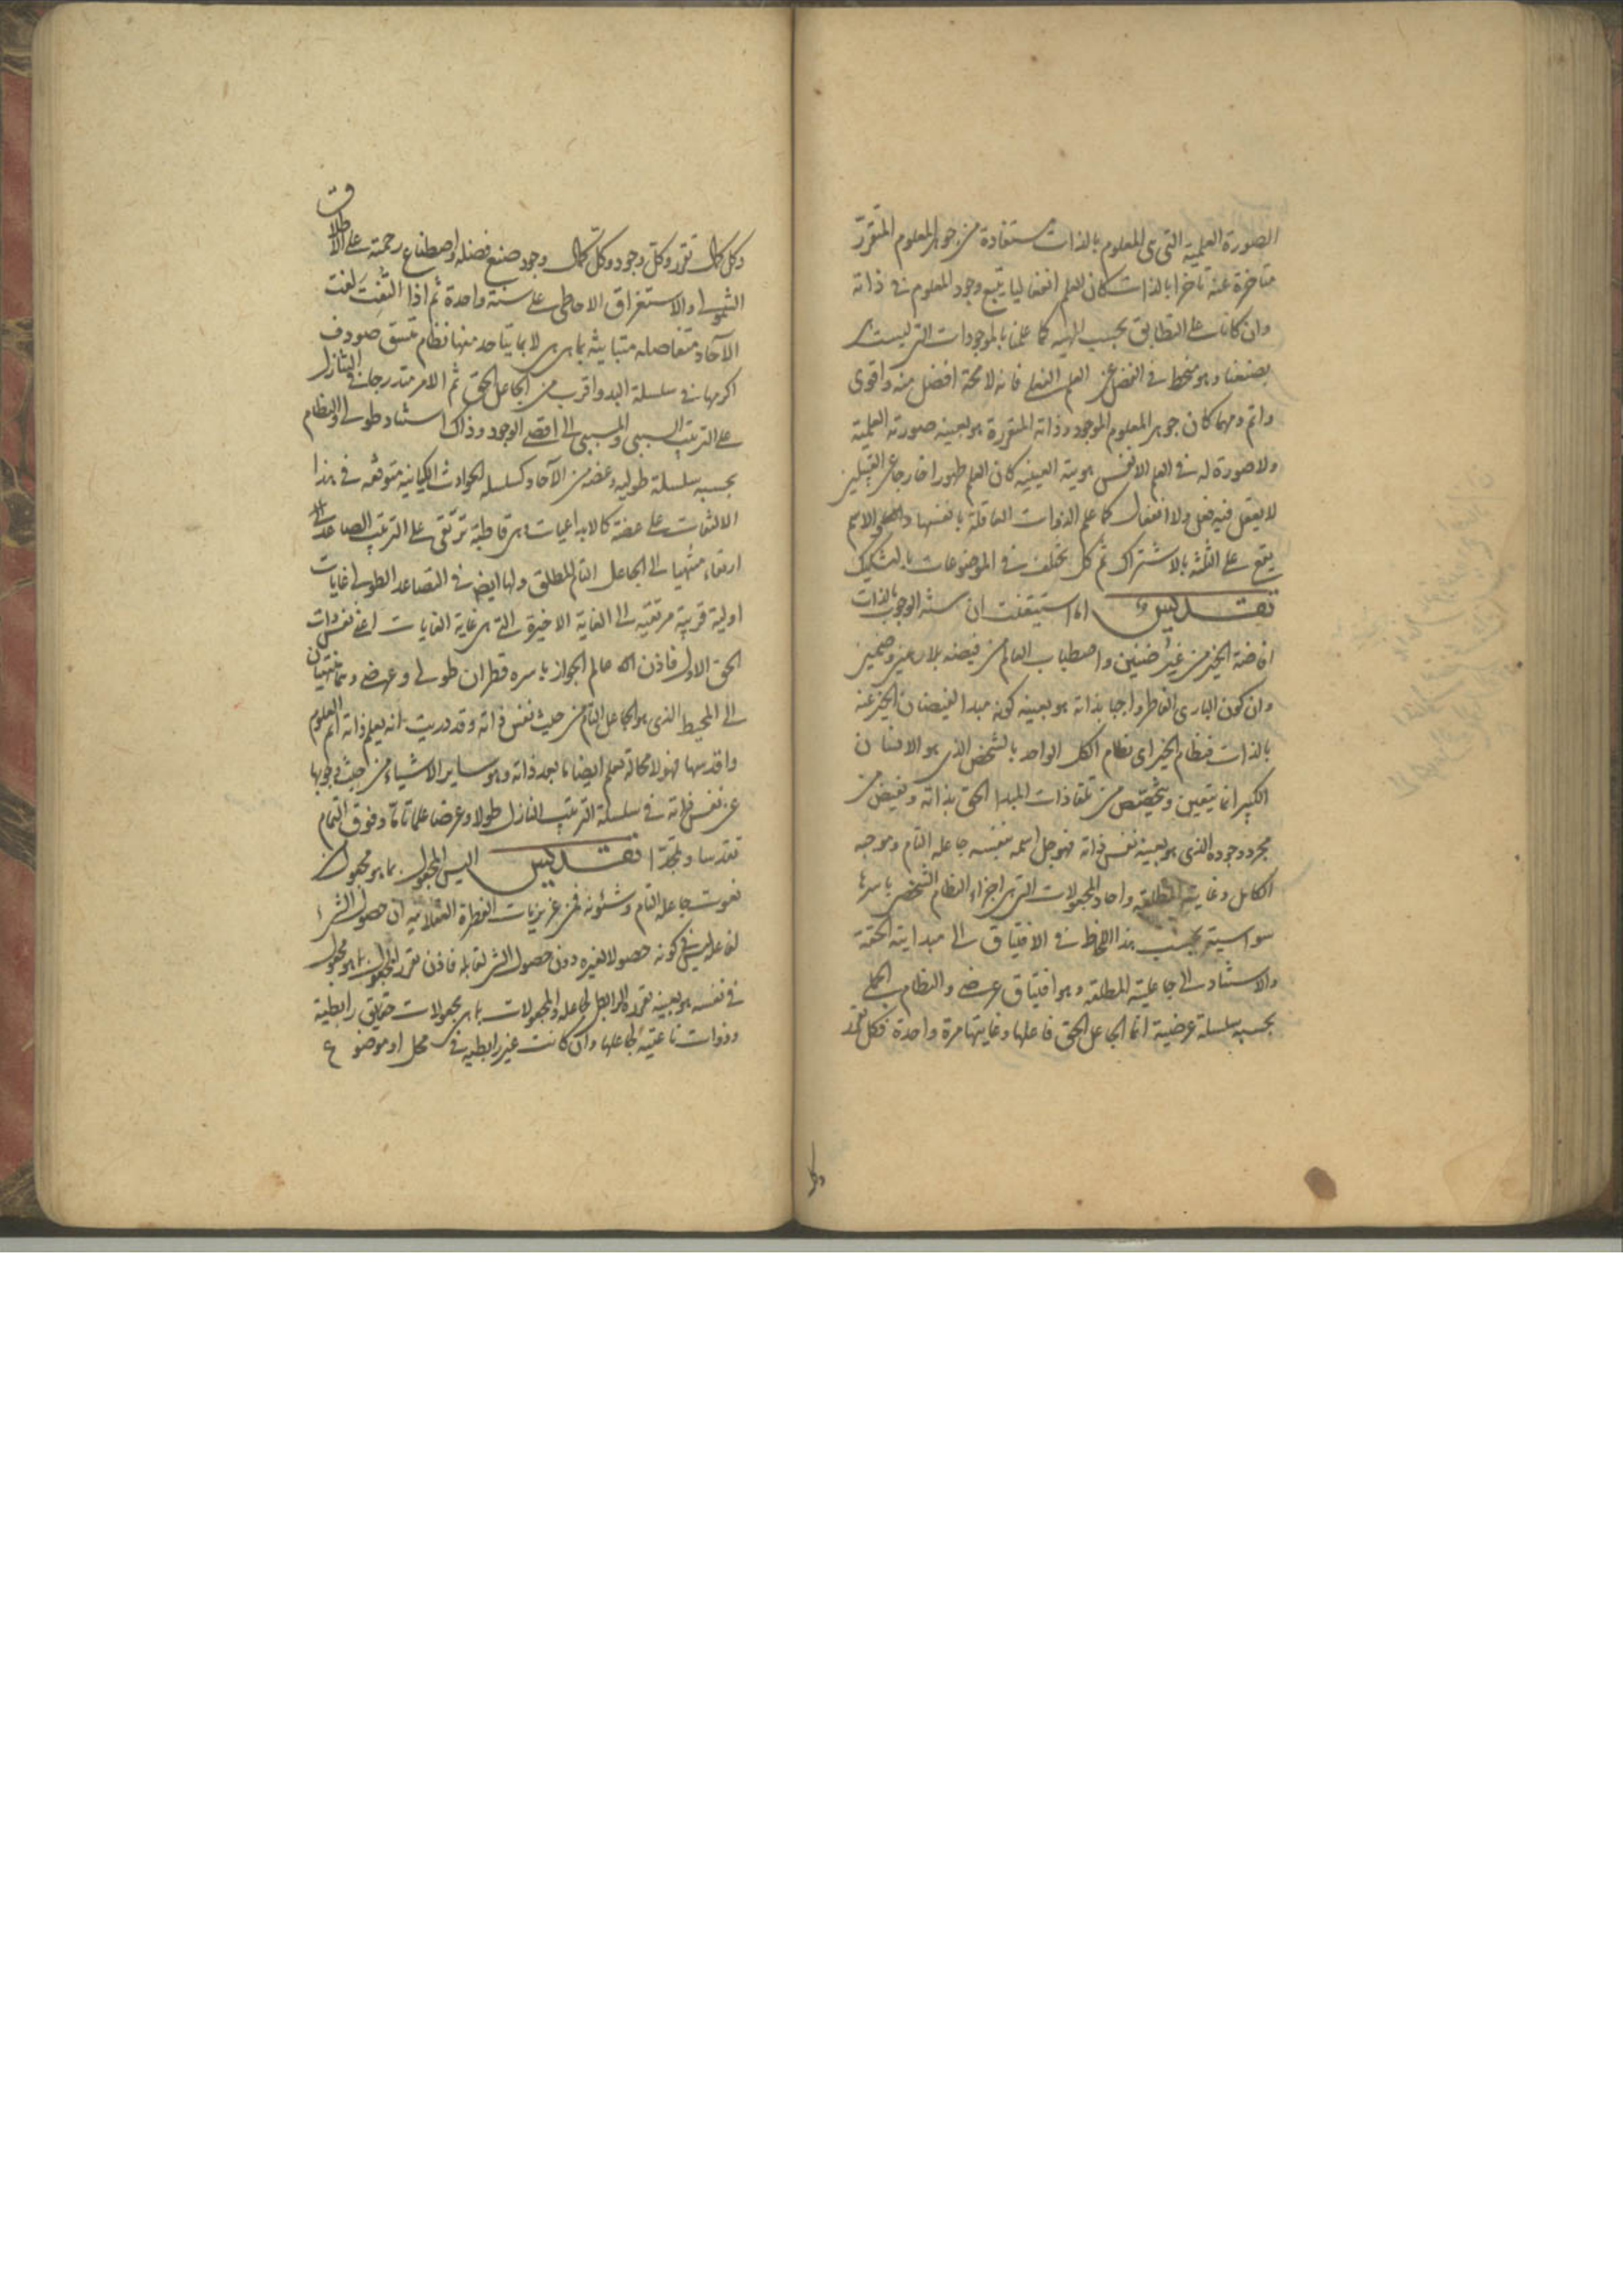 الصورة العلمية التي هي المعلوم بالذات مستفادة من جوهر المعلوم المتقرر
متاخرة عنه تاخرا بالذات كان العلم انفعاليا يتبع وجود المعلوم في ذاته
وان كانا على التطابق بحسب المهيه كما علمنا بالموجودات التي ليست
بصنعنا وهو منحط في الفضل عن العلم الفعلي فانه لا محة افضل منه واقوى
واتم ومهما كان جوهر المعلوم الموجود وذاته المتقررة هو بعينه صورته العلمية
ولا صورة له في العلم الا نفس هويته العينيه كان العلم طورا خارجا عن القبيلين
لا يعقل فيه فعل ولا انفعال كما علم الذوات العاقلة بانفسها والعلم الاتم
يقع على الثلثة بالاشتراك ثم كل مختلف في الموضوعات بالتشكيك
تقديس اما استيقنت ان سنة الوجوب بالذات
افاضة الخير من غير ضنين واصطباب العالم من فيضه بلا
وان كون الباري الفاطر واجبا بذاته هو بعينه كونه مبدا لفيضان الخير عنه
بالذات فنظام الخير اى نظام الكل الواحد بالشخص الذي هو الانسان
الكبير انما يتعين ويتخصص من تلقاء ذات المبدا الحق بذاته ويفيض من
مجرد وجوده الذي هو بعينه نفس ذاته فهو جل اسمه بنفسه جاعله التام وموجبه
الكامل وغايته المطلقه واحاد المجعولات التي هي اجزاء النظام الشخصي باسرها
سواسية بحسب هذا اللحاظ في الافتياق الى مبدايته الحقة
والاستناد الى جاعليته المطلقه وهو افتياق عرضي والنظام الجملي
بحسبه سلسلة عرضية انما الجاعل الحق فاعلها وغايتها مرة واحدة فكل تقرر
وكل كمال تقرر وكل وجود وكل كمال وجود صنيع فضله واصطناع رحمته على الاطلاق
الشمولي والاستغراق الاحاطي على سنة واحدة ثم اذا التفت لفت
الآحاد متفاصله متباينة بما هي هي لا بما يتاحد منها نظام متسق صودف
اكرمها في سلسلة البدو اقرب من الجاعل الحق ثم الامر متدرجا في التنازل
على الترتيب السببي والمسببي الى اقصى الوجود وذاك استناد طولي والنظام
بحسبه سلسلة طوليه وعضة من الآحاد كسلسلة الحوادث الكيانيه متوقعه في هذا
الالتفات على عضة كالابداعيات وهي قاطبة ترتقي على الترتيب الصاعد
ارتقاء منتهيا الى الجاعل التام المطلق ولها ايض في التصاعد الطولي غايات
اولية قريبة مرتقيه الى الغاية الاخيرة التي هي غاية الغايات اعني نفس ذات
الحق الاول فاذن لك عالم الجواز باسره قطران طولي وعرضي وهما منتهيان
الى المحيط الذي هو الجاعل التام من حيث نفس ذاته وقد دريت انه يعلم ذاته اتم العلوم
واقدسها فهو لا محالة يعلم ايضا ما بعد ذاته وهو ساير الاشياء من حيث وجوبها
عن نفس ذاته في سلسلة الترتيب النازل طولا وعرضا علما تاما وفوق التمام
تقدسا وتمجدا تقديس اليس المجعول بما هو مجعول من
نعوت جاعله التام وشئونه فمن غريزيات الفطرة العقلانيه ان حصول الشيء
لفاعله ليس في كونه حصولا لغيره دون حصول الشيء لقابله فاذن تقرر المجعول بما هو مجعول
في نفسه هو بعينه تقرره الرابطي لجاعله والمجعولات بما هي مجعولات حقايق رابطية
وذوات ناعتية لجاعلها وان كانت غير رابطيه في محل او موضوع